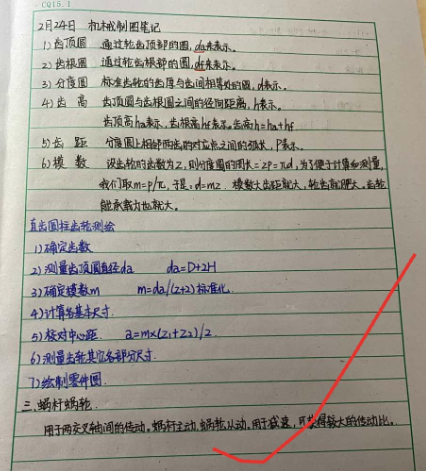 CQ15.1
2月24日 机械制图笔记
1) 齿顶圆 通过轮齿顶部的圆,da来表示。
2) 齿根圆 通过轮齿根部的圆,df来表示。
3) 分度圆 标准齿轮的齿厚与齿间相等处的圆,d表示。
4) 齿高 齿顶圆与齿根圆之间的径向距离,h表示。
齿顶高ha表示,齿根高hf表示。齿高h=ha+hf
5) 齿距 分度圆上相邻两齿的对应点之间的弧长,P表示。
6) 模数 设齿轮的齿数为Z,则分度圆的周长=ZP=πd,为了便于计算和测量,
我们取m=P/π,于是:d=mz. 模数大齿距就大,轮齿就肥大。齿轮
能承载力也就大。
直齿圆柱齿轮测绘
1) 确定齿数
2) 测量齿顶圆直径da da=D+2H
3) 确定模数m m=da/(z+2)标准化.
4) 计算各基本尺寸.
5) 校对中心距. a=m×(Z1+Z2)/2.
6) 测量齿轮其它各部分尺寸.
7) 绘制零件图.
三.蜗杆蜗轮.
用于两交叉轴间的传动。蜗杆主动,蜗轮从动。用于减速,可获得较大的传动比。